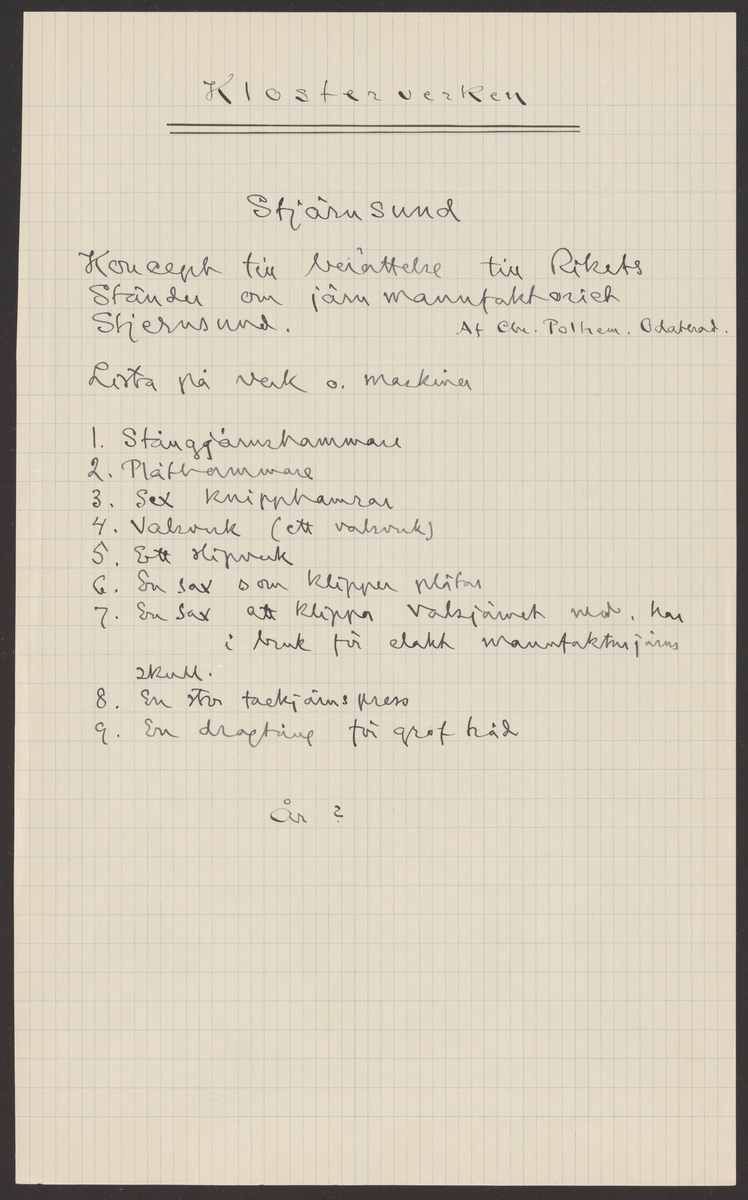 Klosterverken
Stjärnsund
Koncept till berättelse till Rikets
Ständer om järnmannfaktoriet
Stjernsund.
Af Chr. Polhem. Odaterad.
Lista på verk o. maskiner
1. Stånggjärnshammare
2. Plåthammare
3. Sex knipphamrar
4. Valsverk (ett valsverk)
5. Ett slipverk
6. En sax som klipper plåtar
7. En sax att klippa valsjärnet med, har
i bruk för elakt mannfakturjärns
skull.
8. En stor tackjärnspress
9. En dragtång för grof tråd
År ?